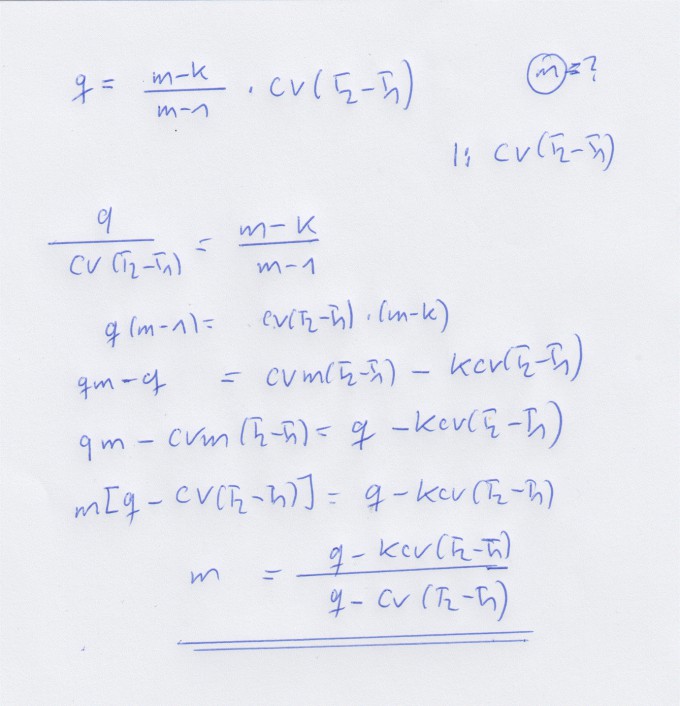 q = m-k / m-1 · cv(T2-T1)
m=?
|: cv(T2-T1)
q / cv(T2-T1) = m-k / m-1
q(m-1) = cv(T2-T1)·(m-k)
qm-q = cvm(T2-T1) - kcv(T2-T1)
qm - cvm(T2-T1) = q - kcv(T2-T1)
m[q - cv(T2-T1)] = q - kcv(T2-T1)
m = q - kcv(T2-T1) / q - cv(T2-T1)